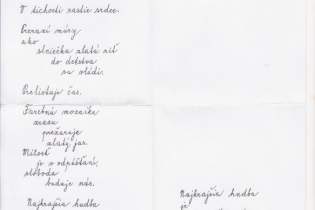 V tichosti rastie srdce.
Prerazí múry
ako
slniečka zlatá niť
do detstva
sa vládi.
Prelistuje čas.
Farebná mozaika
zrazu
prežaruje
zlatý jas.
Milosť
je v odpúšťaní,
sloboda
buduje nás.
Najkrajšia hudba
Najkrajšia hudba
je